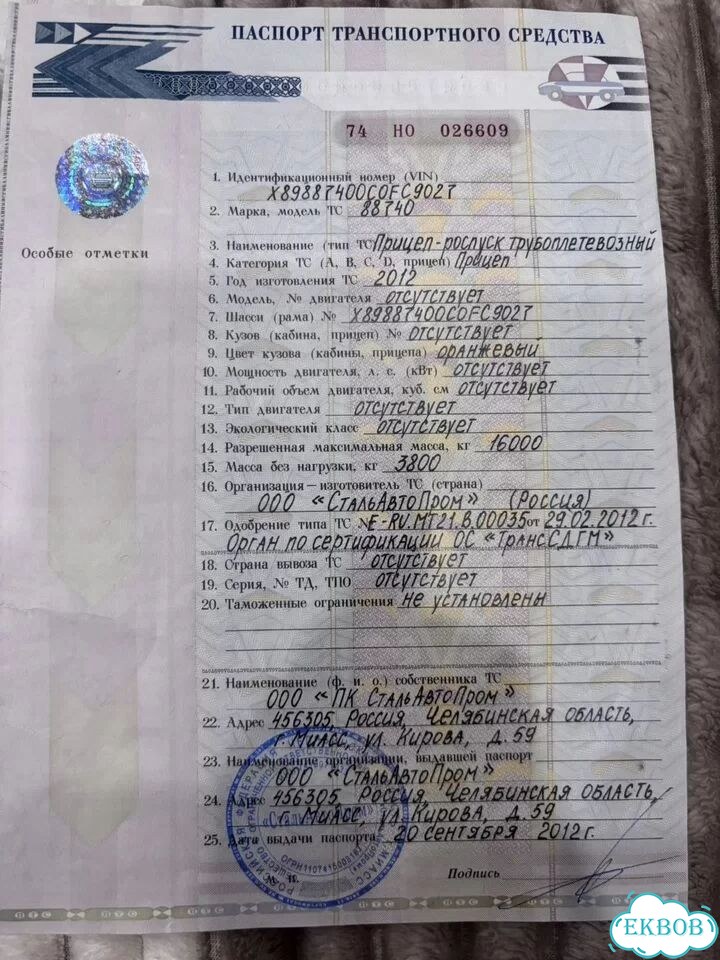 ПАСПОРТ ТРАНСПОРТНОГО СРЕДСТВА
74 НО 026609
Особые отметки
1. Идентификационный номер (VIN)
X89887400C0FC9027
2. Марка, модель ТС 88740
3. Наименование (тип ТС) Прицеп-роспуск трубоплетевозный
4. Категория ТС (А, В, С, D, прицеп) Прицеп
5. Год изготовления ТС 2012
6. Модель, № двигателя отсутствует
7. Шасси (рама) № X89887400C0FC9027
8. Кузов (кабина, прицеп) № отсутствует
9. Цвет кузова (кабины, прицепа) оранжевый
10. Мощность двигателя, л. с. (кВт) отсутствует
11. Рабочий объем двигателя, куб. см отсутствует
12. Тип двигателя отсутствует
13. Экологический класс отсутствует
14. Разрешенная максимальная масса, кг 16000
15. Масса без нагрузки, кг 3800
16. Организация – изготовитель ТС (страна)
ООО «СтальАвтоПром» (Россия)
17. Одобрение типа ТС № E-RU.МТ21.В.00035 от 29.02.2012 г.
Орган по сертификации ОС «ТрансСДГМ»
18. Страна вывоза ТС отсутствует
19. Серия, № ТД, ТПО отсутствует
20. Таможенные ограничения не установлены
21. Наименование (ф. и. о.) собственника ТС
ООО «ПК СтальАвтоПром»
22. Адрес 456305, Россия, Челябинская область,
г. Миасс, ул. Кирова, д. 59
23. Наименование организации, выдавшей паспорт
ООО «СтальАвтоПром»
24. Адрес 456305, Россия, Челябинская область,
г. Миасс, ул. Кирова, д. 59
25. Дата выдачи паспорта 20 сентября 2012 г.
М. П.
Подпись
ПТС
EKBOB